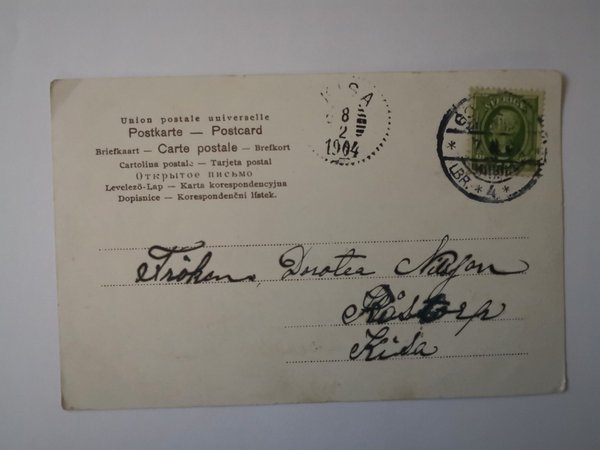 Union postale universelle
Postkarte — Postcard
Briefkaart — Carte postale — Brefkort
Cartolina postale — Tarjeta postal
Открытое письмо
Levelező-Lap — Karta korespondencyjna
Dopisnice — Korespondenční lístek.
KISA
8
2
1904
SVERIGE
LBR. * A *
Fröken Dorotea Nilsson
Råstorp
Kisa